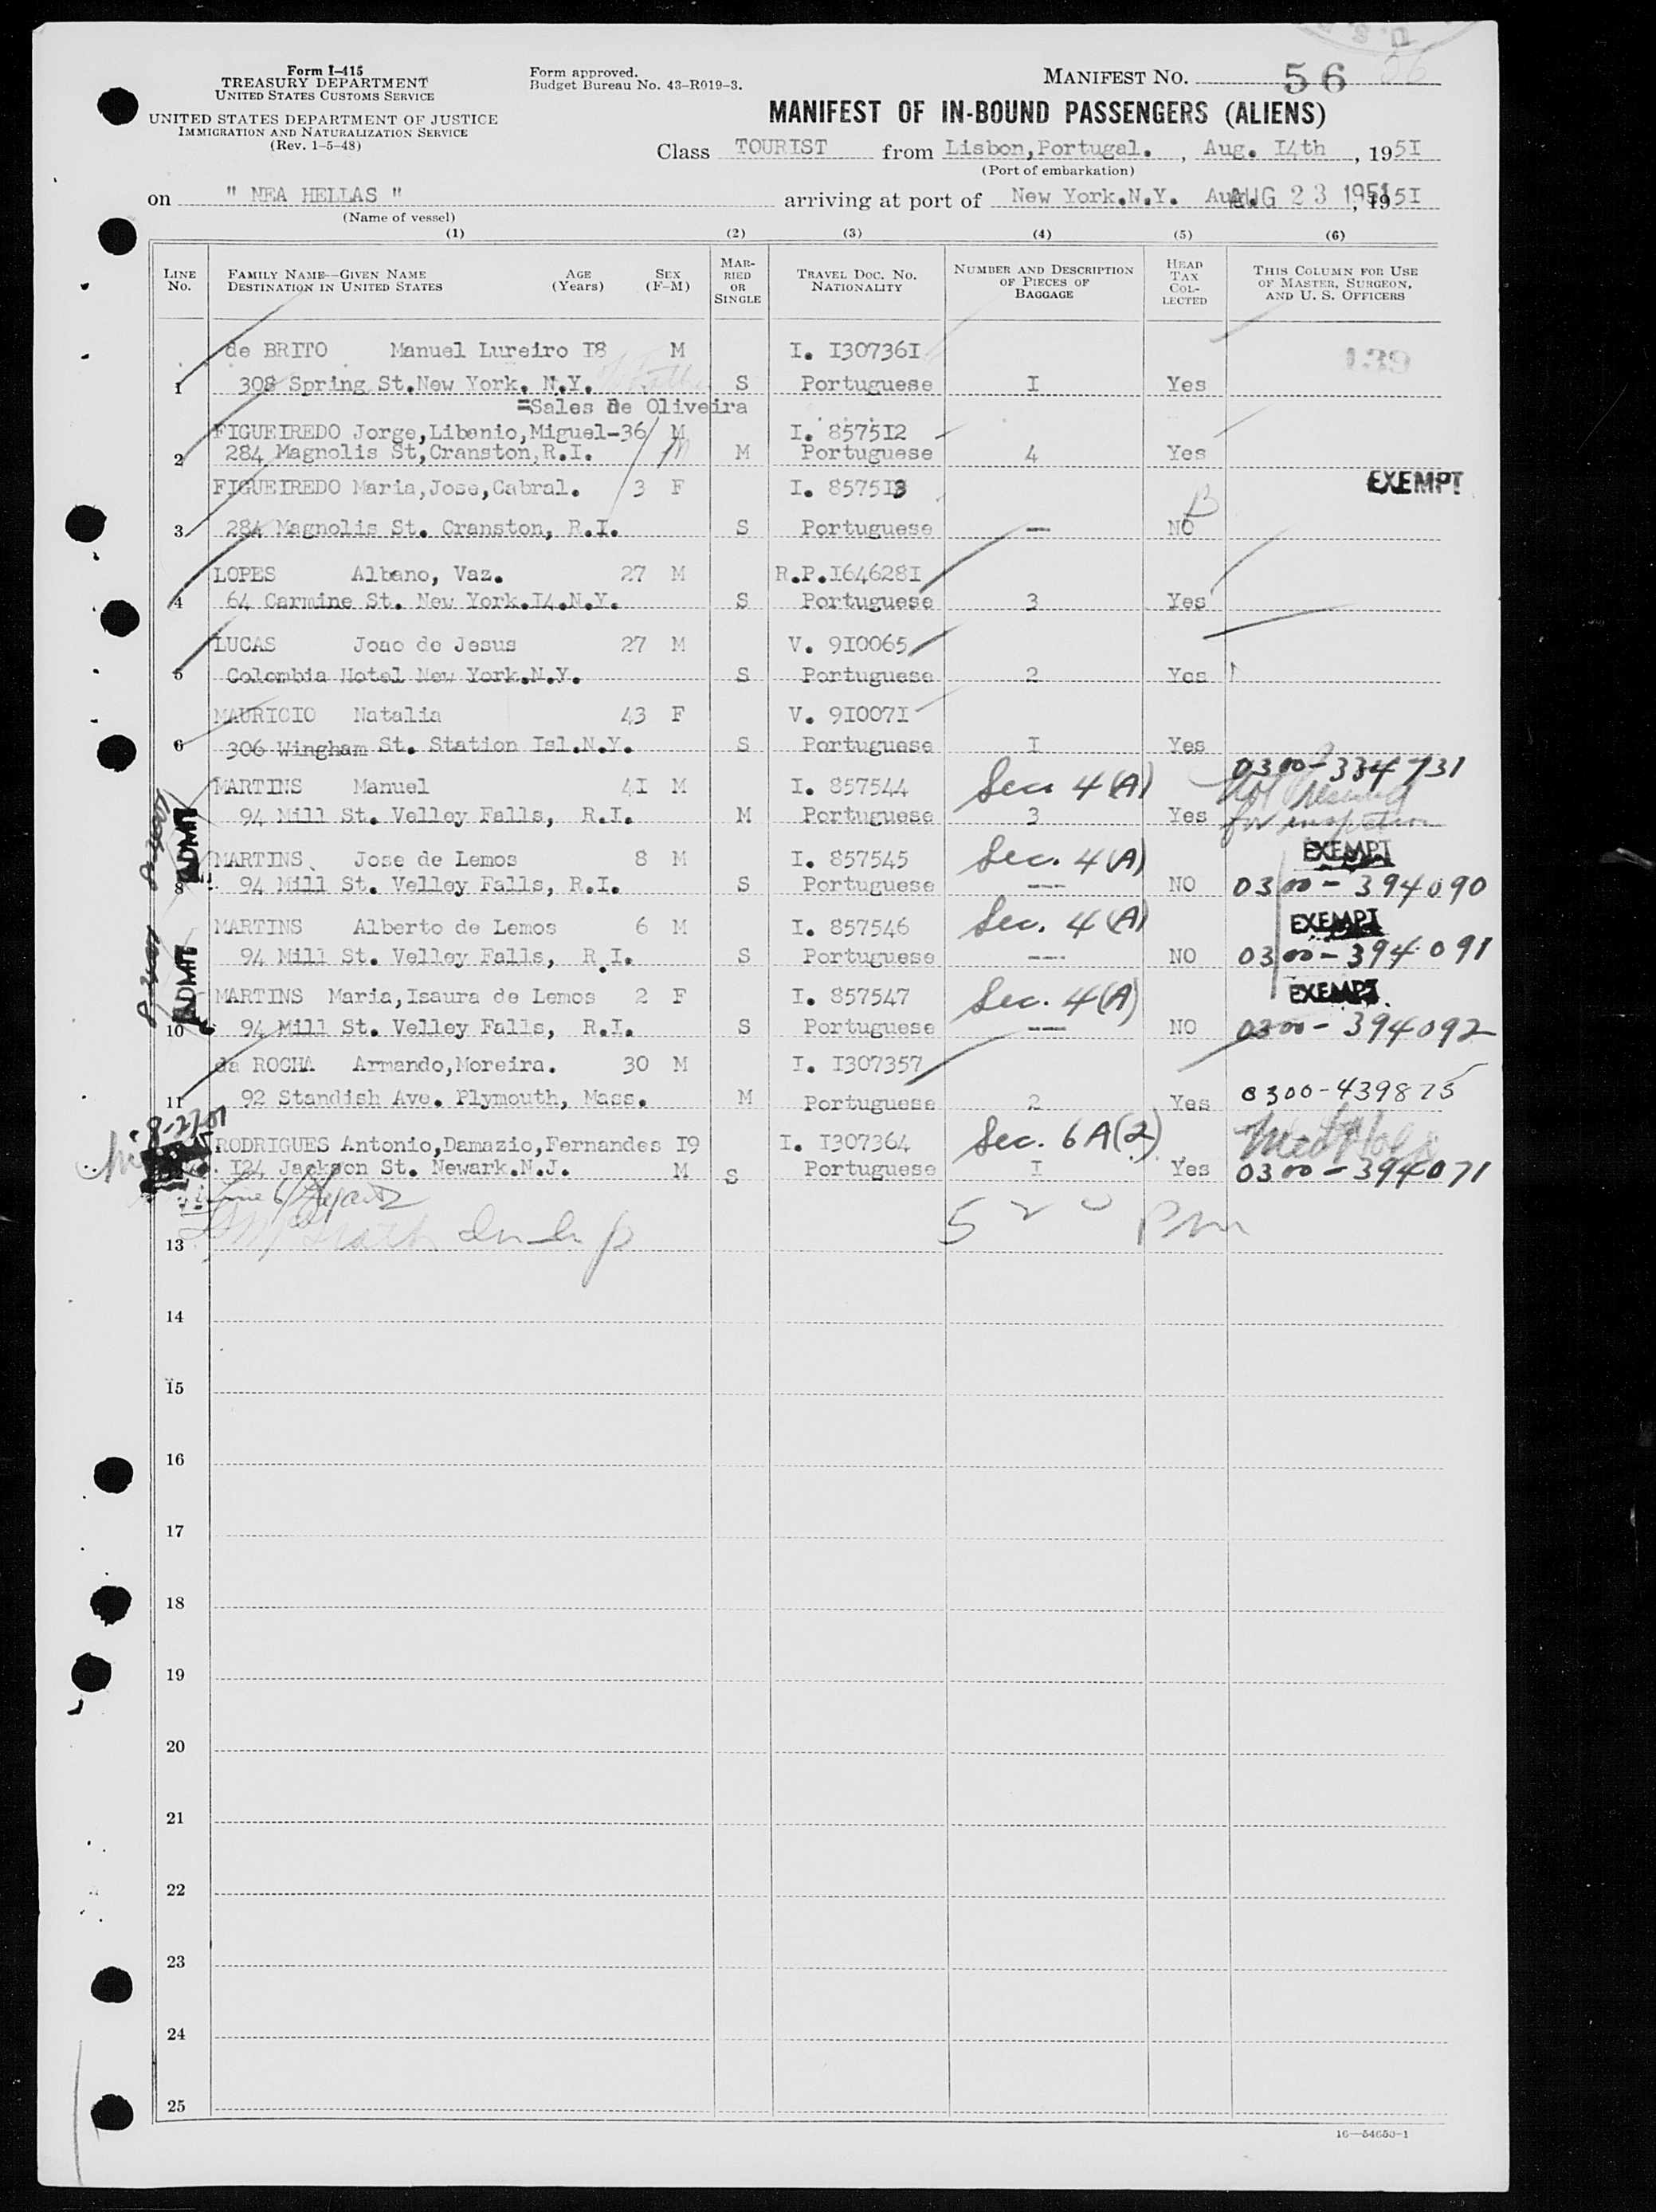 Form I-415
TREASURY DEPARTMENT
UNITED STATES CUSTOMS SERVICE
UNITED STATES DEPARTMENT OF JUSTICE
IMMIGRATION AND NATURALIZATION SERVICE
(Rev. 1-5-48)
Form approved.
Budget Bureau No. 43-R019-3.
MANIFEST NO. 56 56
MANIFEST OF IN-BOUND PASSENGERS (ALIENS)
Class TOURIST from Lisbon,Portugal. , Aug. I4th , 195I
(Port of embarkation)
on " NEA HELLAS " arriving at port of New York.N.Y. Aug. AUG 23 1951 , 195I
(Name of vessel)
(1) (2) (3) (4) (5) (6)
LINE NO.
FAMILY NAME—GIVEN NAME
DESTINATION IN UNITED STATES
AGE (Years)
SEX (F-M)
MARRIED OR SINGLE
TRAVEL DOC. NO. NATIONALITY
NUMBER AND DESCRIPTION OF PIECES OF BAGGAGE
HEAD TAX COLLECTED
THIS COLUMN FOR USE OF MASTER, SURGEON, AND U. S. OFFICERS
de BRITO Manuel Lureiro I8 M I. I30736I 139
1 308 Spring St.New York. N.Y. S Portuguese I Yes
=Sales de Oliveira
FIGUEIREDO Jorge,Libanio,Miguel-36 M I. 8575I2
2 284 Magnolis St,Cranston,R.I. M M Portuguese 4 Yes
FIGUEIREDO Maria,Jose,Cabral. 3 F I. 8575I3 EXEMPT
3 284 Magnolis St. Cranston, R.I. S Portuguese — NO
LOPES Albano, Vaz. 27 M R.P.I64628I
4 64 Carmine St. New York.I4.N.Y. S Portuguese 3 Yes
LUCAS Joao de Jesus 27 M V. 9I0065
5 Colombia Hotel New York.N.Y. S Portuguese 2 Yes
MAURICIO Natalia 43 F V. 9I007I
6 306 Wingham St. Station Isl.N.Y. S Portuguese I Yes
0300-334731
MARTINS Manuel 4I M I. 857544 Sec. 4(A) Not
94 Mill St. Velley Falls, R.I. M Portuguese 3 Yes for inspection
ADMIT
MARTINS Jose de Lemos 8 M I. 857545 Sec. 4(A) EXEMPT
8 94 Mill St. Velley Falls, R.I. S Portuguese --- NO 0300-394090
MARTINS Alberto de Lemos 6 M I. 857546 Sec. 4(A) EXEMPT
94 Mill St. Velley Falls, R.I. S Portuguese --- NO 0300-394091
ADMIT
MARTINS Maria,Isaura de Lemos 2 F I. 857547 Sec. 4(A) EXEMPT
10 94 Mill St. Velley Falls, R.I. S Portuguese --- NO 0300-394092
da ROCHA Armando,Moreira. 30 M I. I307357
11 92 Standish Ave. Plymouth, Mass. M Portuguese 2 Yes 0300-439875
RODRIGUES Antonio,Damazio,Fernandes I9 I. I307364 Sec. 6A(2) Med Hold
I24 Jackson St. Newark.N.J. M S Portuguese I Yes 0300-394071
13 5 20 Pm
14
15
16
17
18
19
20
21
22
23
24
25
16—54650-1